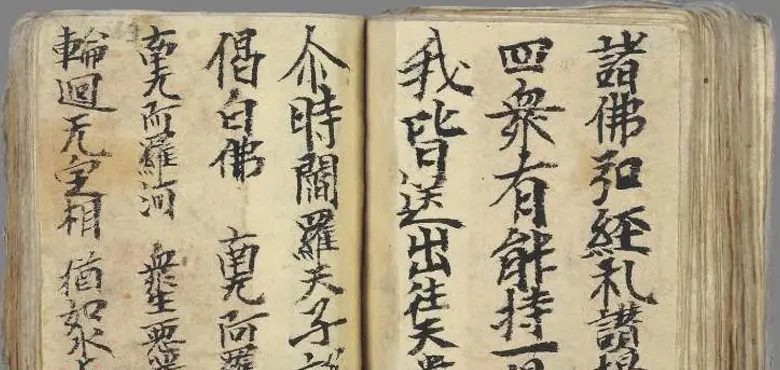 諸佛弘經礼讃揚
四衆有能持一偈
我皆送出往天堂
尒時閻羅天子說
偈白佛 南无阿羅
南无阿羅河 衆生惡業
輪迴无定相 猶如水上